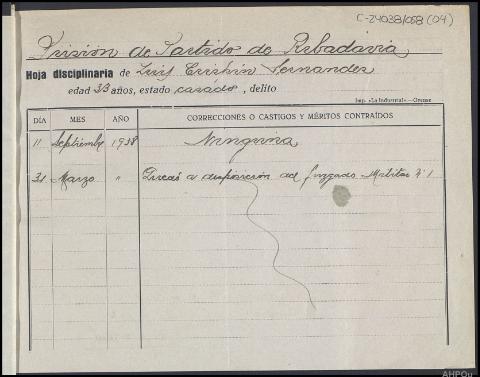 C-24038/058 (04)
Prisión de Partido de Ribadavia
Hoja disciplinaria de Luis Crishin Fernandez
edad 33 años, estado casado, delito
Imp. «La Industrial».-Orense
DÍA MES AÑO CORRECCIONES O CASTIGOS Y MÉRITOS CONTRAÍDOS
11 Septiembre 1938 Ninguna
31 Marzo " Queda a disposición del Juzgado Militar nº 1
AHPOu